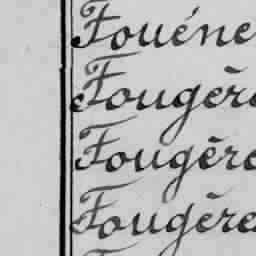 Fouéne
Fougèr
Fougère
Fougère